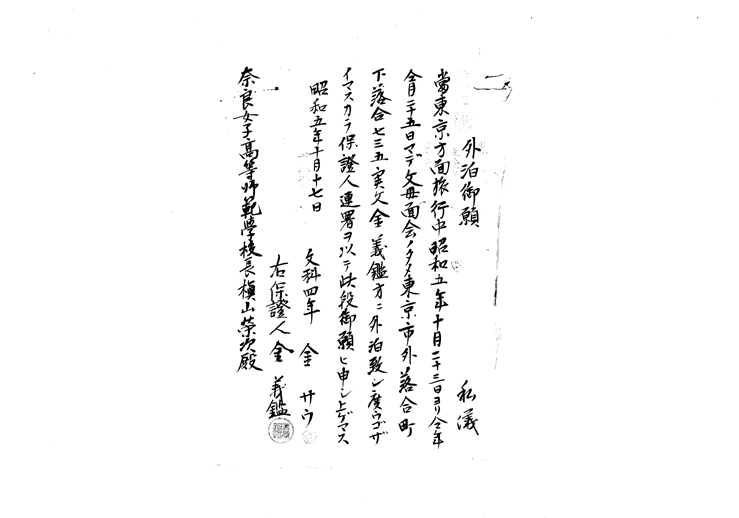 外泊御願
私儀
當東京方面旅行中昭和五年十月二十三日ヨリ仝年
仝月二十五日マデ父母面会ノタメ東京市外落合町
下落合七三五実父金義鑑方ニ外泊致シ度ウゴザ
イマスカラ保證人連署ヲ以テ此段御願ヒ申シ上ゲマス
昭和五年十月十七日
文科四年 金サウ
右保證人金義鑑
奈良女子高等師範學校長槇山榮次殿